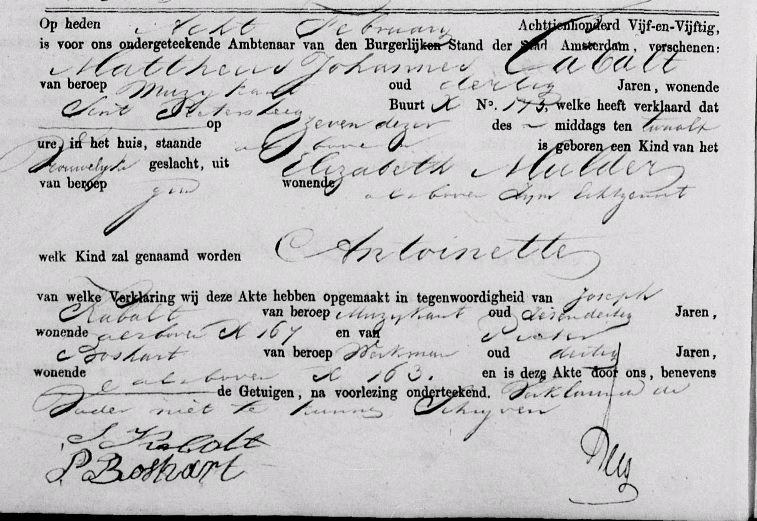 Op heden Acht Februarij Achttienhonderd Vijf-en-Vijftig,
is voor ons ondergeteekende Ambtenaar van den Burgerlijken Stand der Stad Amsterdam, verschenen:
Mattheus Johannes Cabalt
van beroep Muzykant oud dertig Jaren, wonende
Sint Pietersteeg Buurt K No. 173, welke heeft verklaard dat
op zeven dezer des middags ten twaalf
ure, in het huis, staande alsboven is geboren een Kind van het
Vrouwelyk geslacht, uit Elizabeth Mulder
van beroep geen wonende alsboven zyne Echtgenoot
welk Kind zal genaamd worden Antoinette
van welke Verklaring wij deze Akte hebben opgemaakt in tegenwoordigheid van Joseph
Kabalt van beroep Muzykant oud Jaren,
wonende alsboven K 167 en van Pieter
Boshart van beroep Werkman oud dertig Jaren,
wonende alsboven K 163. en is deze Akte door ons, benevens
de Getuigen, na voorlezing onderteekend. Verklarende de
Vader niet te kunnen Schryven
J Kabalt
P Boshart